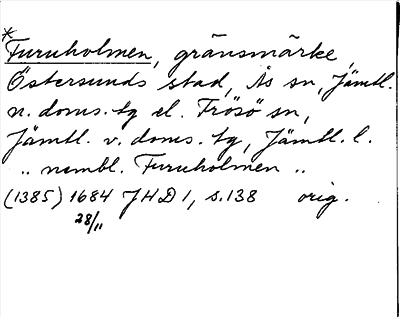 *
Furuholmen, gränsmärke,
Östersunds stad, Ås sn, Jämtl.
n. doms. tg el. Frösö sn,
Jämtl. v. doms. tg, Jämtl. l.
„ nembl. Furuholmen „
(1385) 1684 JHD 1, s. 138 orig.
28/11